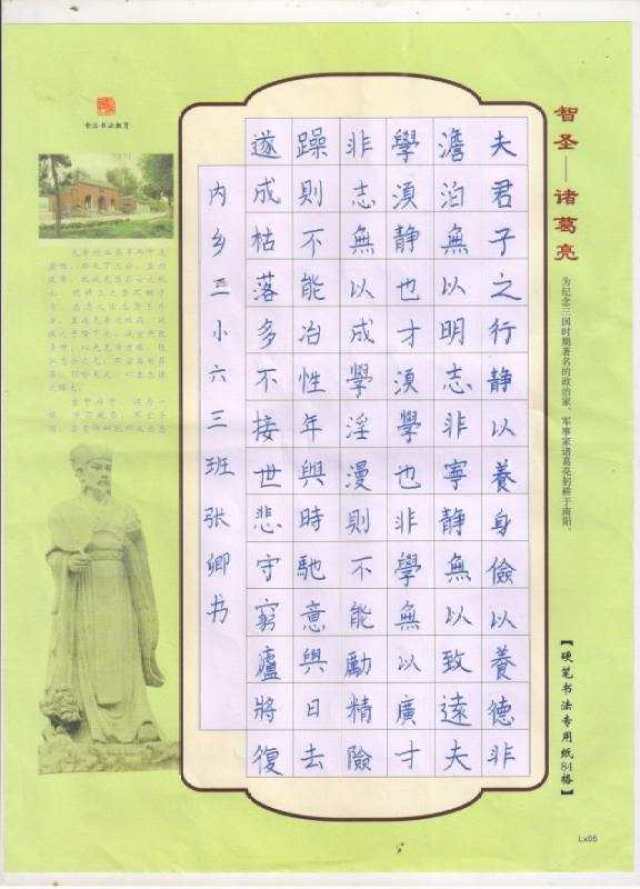 智圣—诸葛亮
为纪念三国时期著名的政治家、军事家诸葛亮躬耕于南阳。
【硬笔书法专用纸84格】
夫君子之行静以養身儉以養德非
澹泊無以明志非寧静無以致遠夫
學須静也才須學也非學無以廣才
非志無以成學淫漫則不能勵精險
躁則不能冶性年與時馳意與日去
遂成枯落多不接世悲守窮廬將復
内乡二小六三班张卿书
书法教育
Lx05